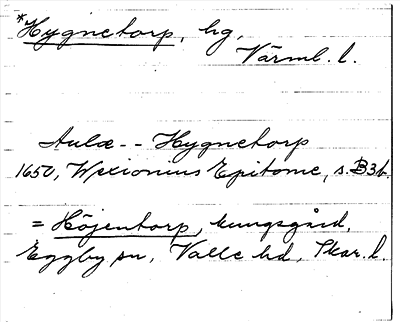 *Hygnetorp, hg,
Värml. l.
Aulæ -- Hygnetorp
1650, Wexionius Epitome, s. B3b.
= Höjentorp, kungsgård,
Eggby sn, Valle hd, Skar. l.